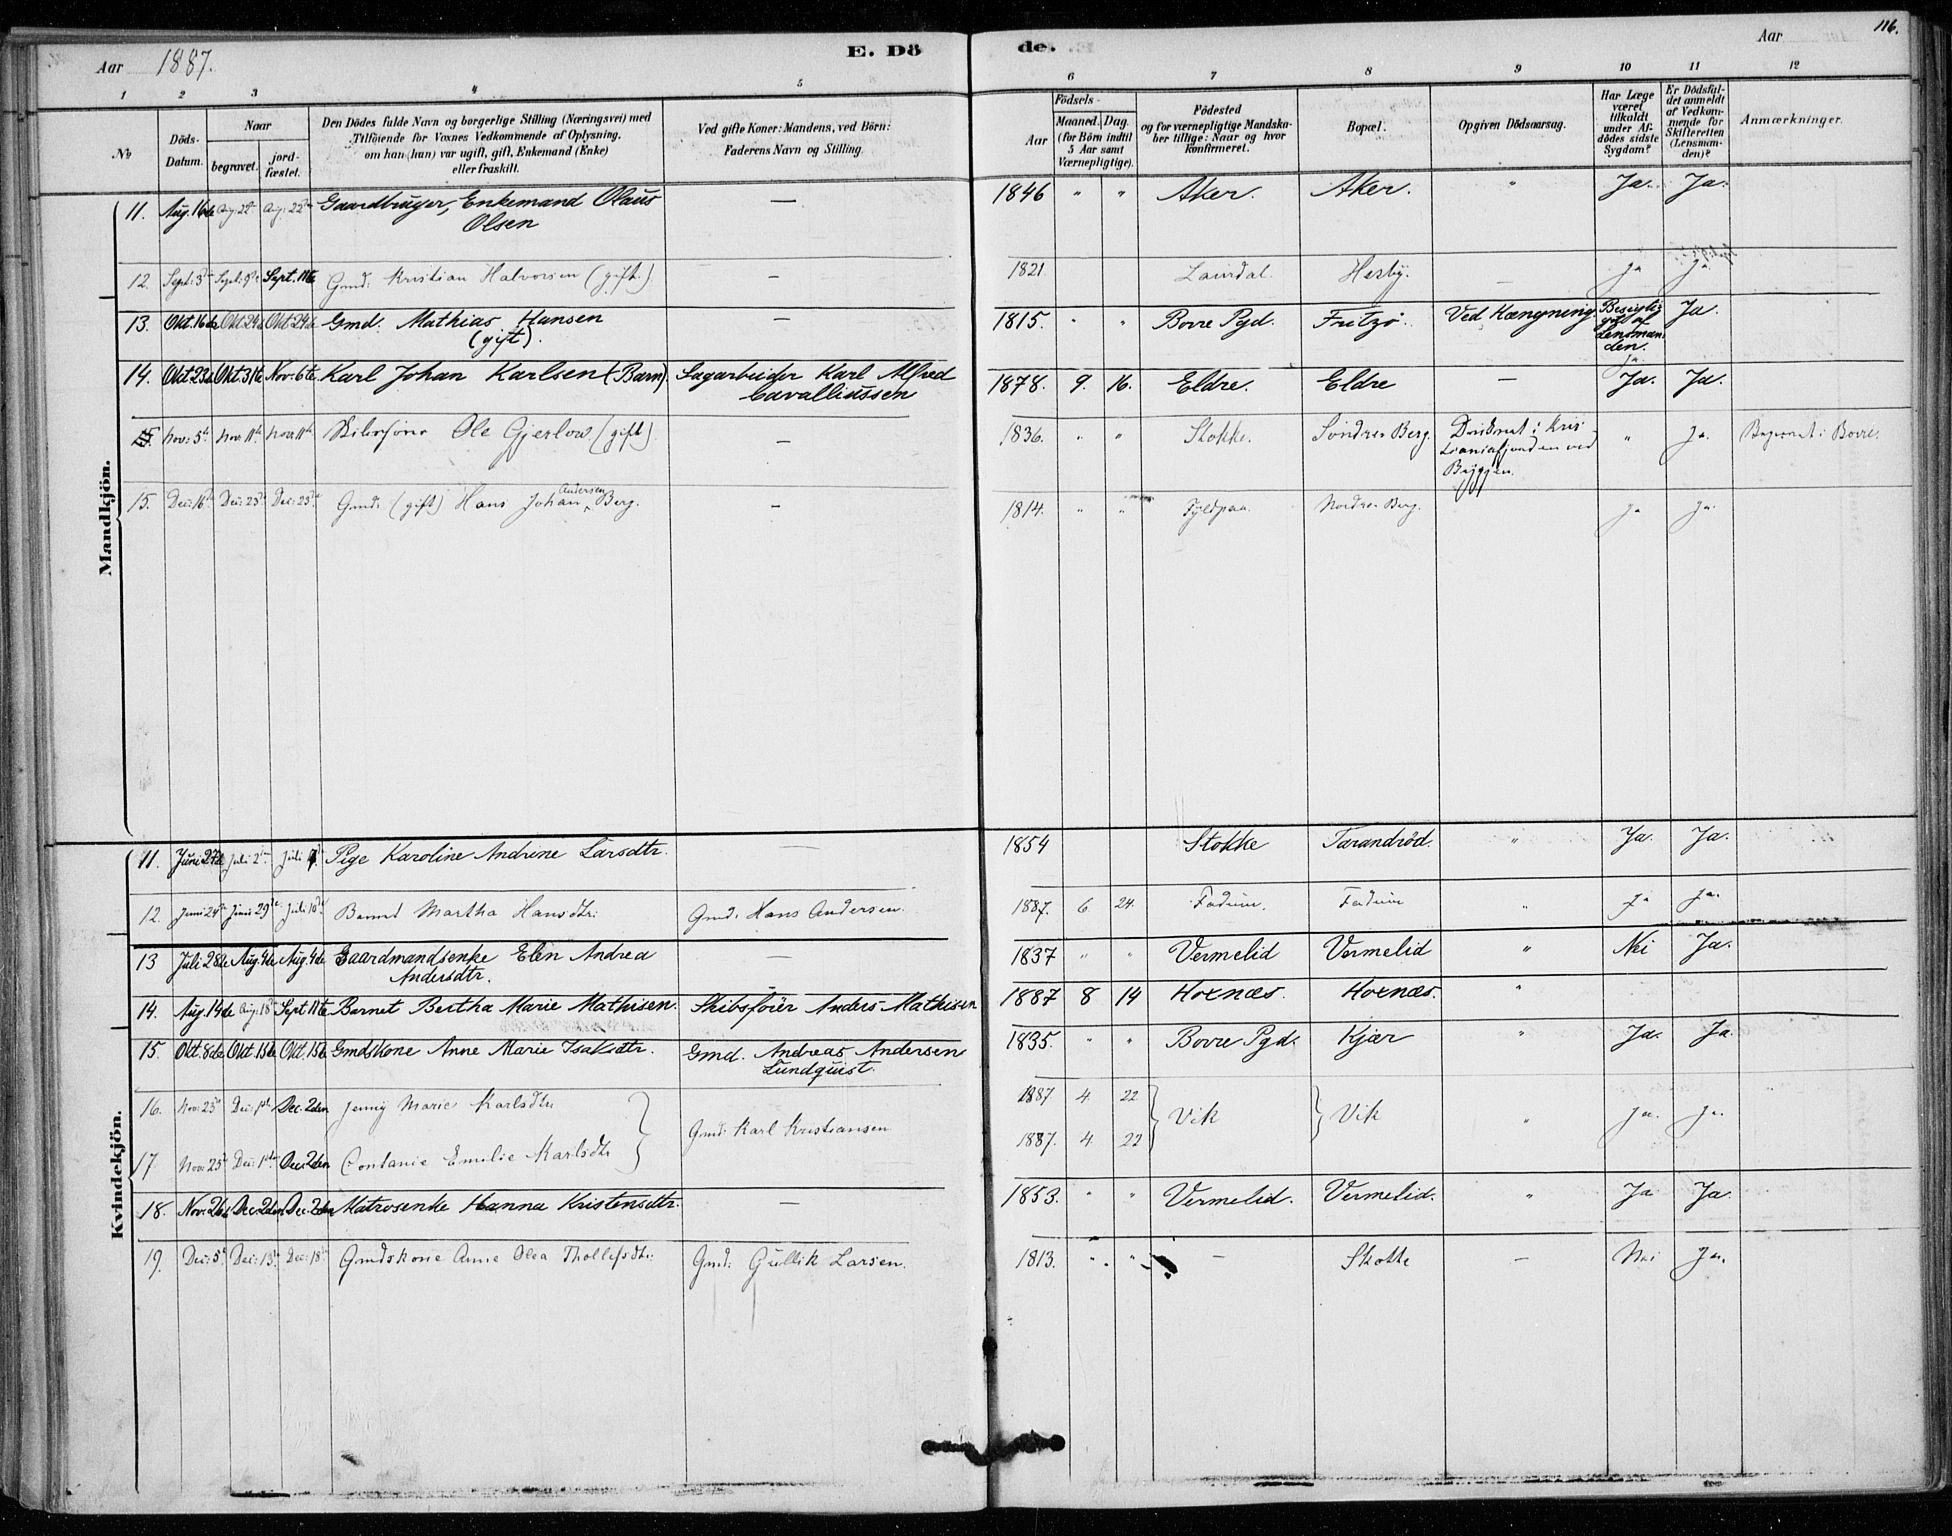 116.
Aar 1887. E. Dö de. Aar
1 2 3 4 5 6 7 8 9 10 11 12
No
Döds-Datum.
Naar
begravet.
jord-fæstet.
Den Dödes fulde Navn og borgerlige Stilling (Næringsvei) med
Tilföiende for Voxnes Vedkommende af Oplysning,
om han (hun) var ugift, gift, Enkemand (Enke)
eller fraskilt.
Ved gifte Koner: Mandens, ved Börn:
Faderens Navn og Stilling.
Födsels-
Aar
Maaned. Dag.
(for Börn indtil
5 Aar samt
Værnepligtige).
Födested
og for værnepligtige Mandska-
ber tillige: Naar og hvor
konfirmeret.
Bopæl.
Opgiven Dödsaarsag.
Har Læge
været
tilkaldt
under Af-
dödes sidste
Sygdom?
Er Dödsfal-
det anmeldt
af Vedkom-
mende for
Skifteretten
(Lensman-
den)?
Anmærkninger.
Mandkjön.
11. Aug. 16de Aug. 22de Aug. 22de Gaardbruger, Enkemand Olaus — 1846 " " Aker. Aker. " Ja. Ja.
Olsen
12. Sept: 3die Sept: 9de Sept. 11te Gmd: Kristian Halvorsen (gift.) — 1821 Hesby. — Ja Ja
13. Okt. 16de Okt 29de Okt 29de Gmd. Mathias Hansen — 1815. " " Borre Pgd. Fritzø. Ved Hængning. Ja.
(gift).
Lensman-
den.
14. Okt 23de Okt. 31te Nov. 6te Karl Johan Karlsen (Barn). Sagarbeider Karl Alfred 1878. 9. 16. Eldre. Eldre — Ja. Ja.
Cavalliussen
15. Nov: 5te Nov: 11te Nov: 11te Ole Gjerlow (gift). — 1836. " " Stokke. Søndre Berg. " Ja. Begravet i Borre.
15. Dec: 16de Dec: 23de Dec: 23de Gmd: (gift) Hans Johan Andersen Berg. — 1814. " " Nordre Berg. Ja Ja.
Kvindekjön.
11. Juni 27de Juli 2den Juli Pige Karoline Andrine Larsdtr. — 1854 Stokke Tarandrød. " Ja. Ja.
12. Juni 24de Juni 29de Juli 10de Barnet Martha Hansdtr: Gmd: Hans Andersen. 1887. 6 24. Fadum. Fadum " Ja Ja.
13 Juli 28de Aug. 4de Aug. 4de Gaardmandsenke Elen Andrea — 1837 " " Vermelid Vermelid " Nei Ja.
Andersdtr.
14. Aug. 14de Aug: 18de Sept 11te Barnet Bertha Marie Mathisen. Skibsfører Anders Mathisen 1887 8 14 Hornæs. Hornæs. "
15. Okt. 8de Okt. 15de Okt. 15de Gmdskone Anne Marie Isaksdtr. Gmd. Andreas Andersen 1835. " " Borre Pgd. Kjær " Ja. Ja
Lundquist.
16. Nov: 23de Dec: 1ste Dec. 2den Jenny Marie Karlsdtr 1887. 4. 22
Gmd: Karl Kristiansen Vik Vik " Ja. Ja.
17. Nov: 25de Dec: 1ste Dec. 2den Contanie Emilie Karlsdtr 1887. 4 22
18. Nov. 26de Dec. 2den Dec. 2den Matrosenke Hanna Kristensdtr. — 1853. " " Vermelid. Vermelid. " Ja Ja
19. Dec: 5te Dec: 13de Dec: 18de Gmdskone Anne Olea Thollefsdtr: Gmd: Gullik Larsen. 1813. " " — Skotte — Nei Ja.